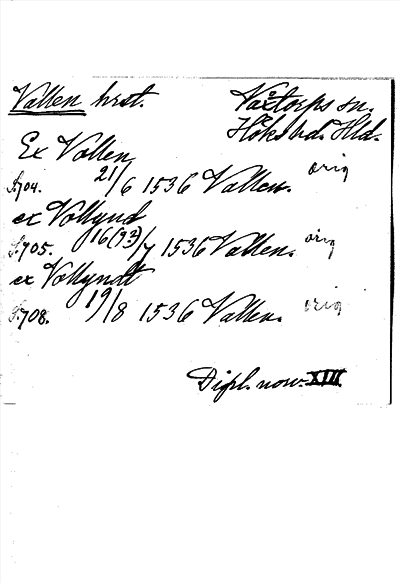 Vallen hrst. Våxtorps sn.
Höks hd. Hld.
Ex Vollen
S. 704. 21/6 1536 Vallen. orig
ex Vollynd
S. 705. 16(?3)/7 1536 Vallen. orig
ex Vollyndt
S. 708. 19/8 1536 Vallen. orig
Dipl. norv. XIII.